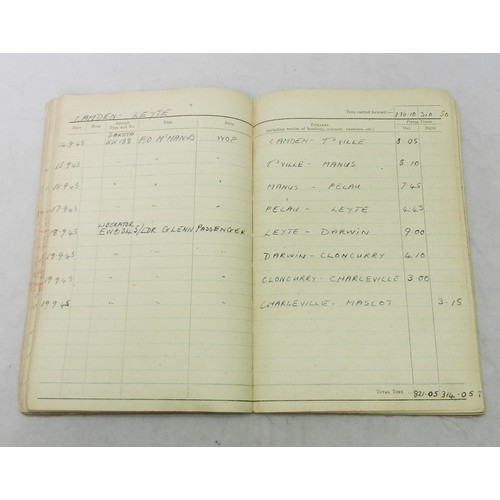 CAMDEN - LEYTE
Time carried forward:—
Date Hour Aircraft Type and No. Pilot Duty
Remarks Flying Times
(including results of bombing, gunnery, exercises, etc.) Day Night
14.9.45 DAKOTA F/O McMANUS WOP CAMDEN - T'VILLE 8.05
15.9.45 " " " T'VILLE - MANUS 8.10
16.9.45 " " " MANUS - PELAU 7.45
17.9.45 " " " PELAU - LEYTE 4.45
18.9.45 LIBERATOR S/LDR GLENN PASSENGER LEYTE - DARWIN 9.00
19.9.45 " " " DARWIN - CLONCURRY 4.10
19.9.45 " " " CLONCURRY - CHARLEVILLE 3.00
19.9.45 " " " CHARLEVILLE - MASCOT 3.15
Total Time 821.05 314.05